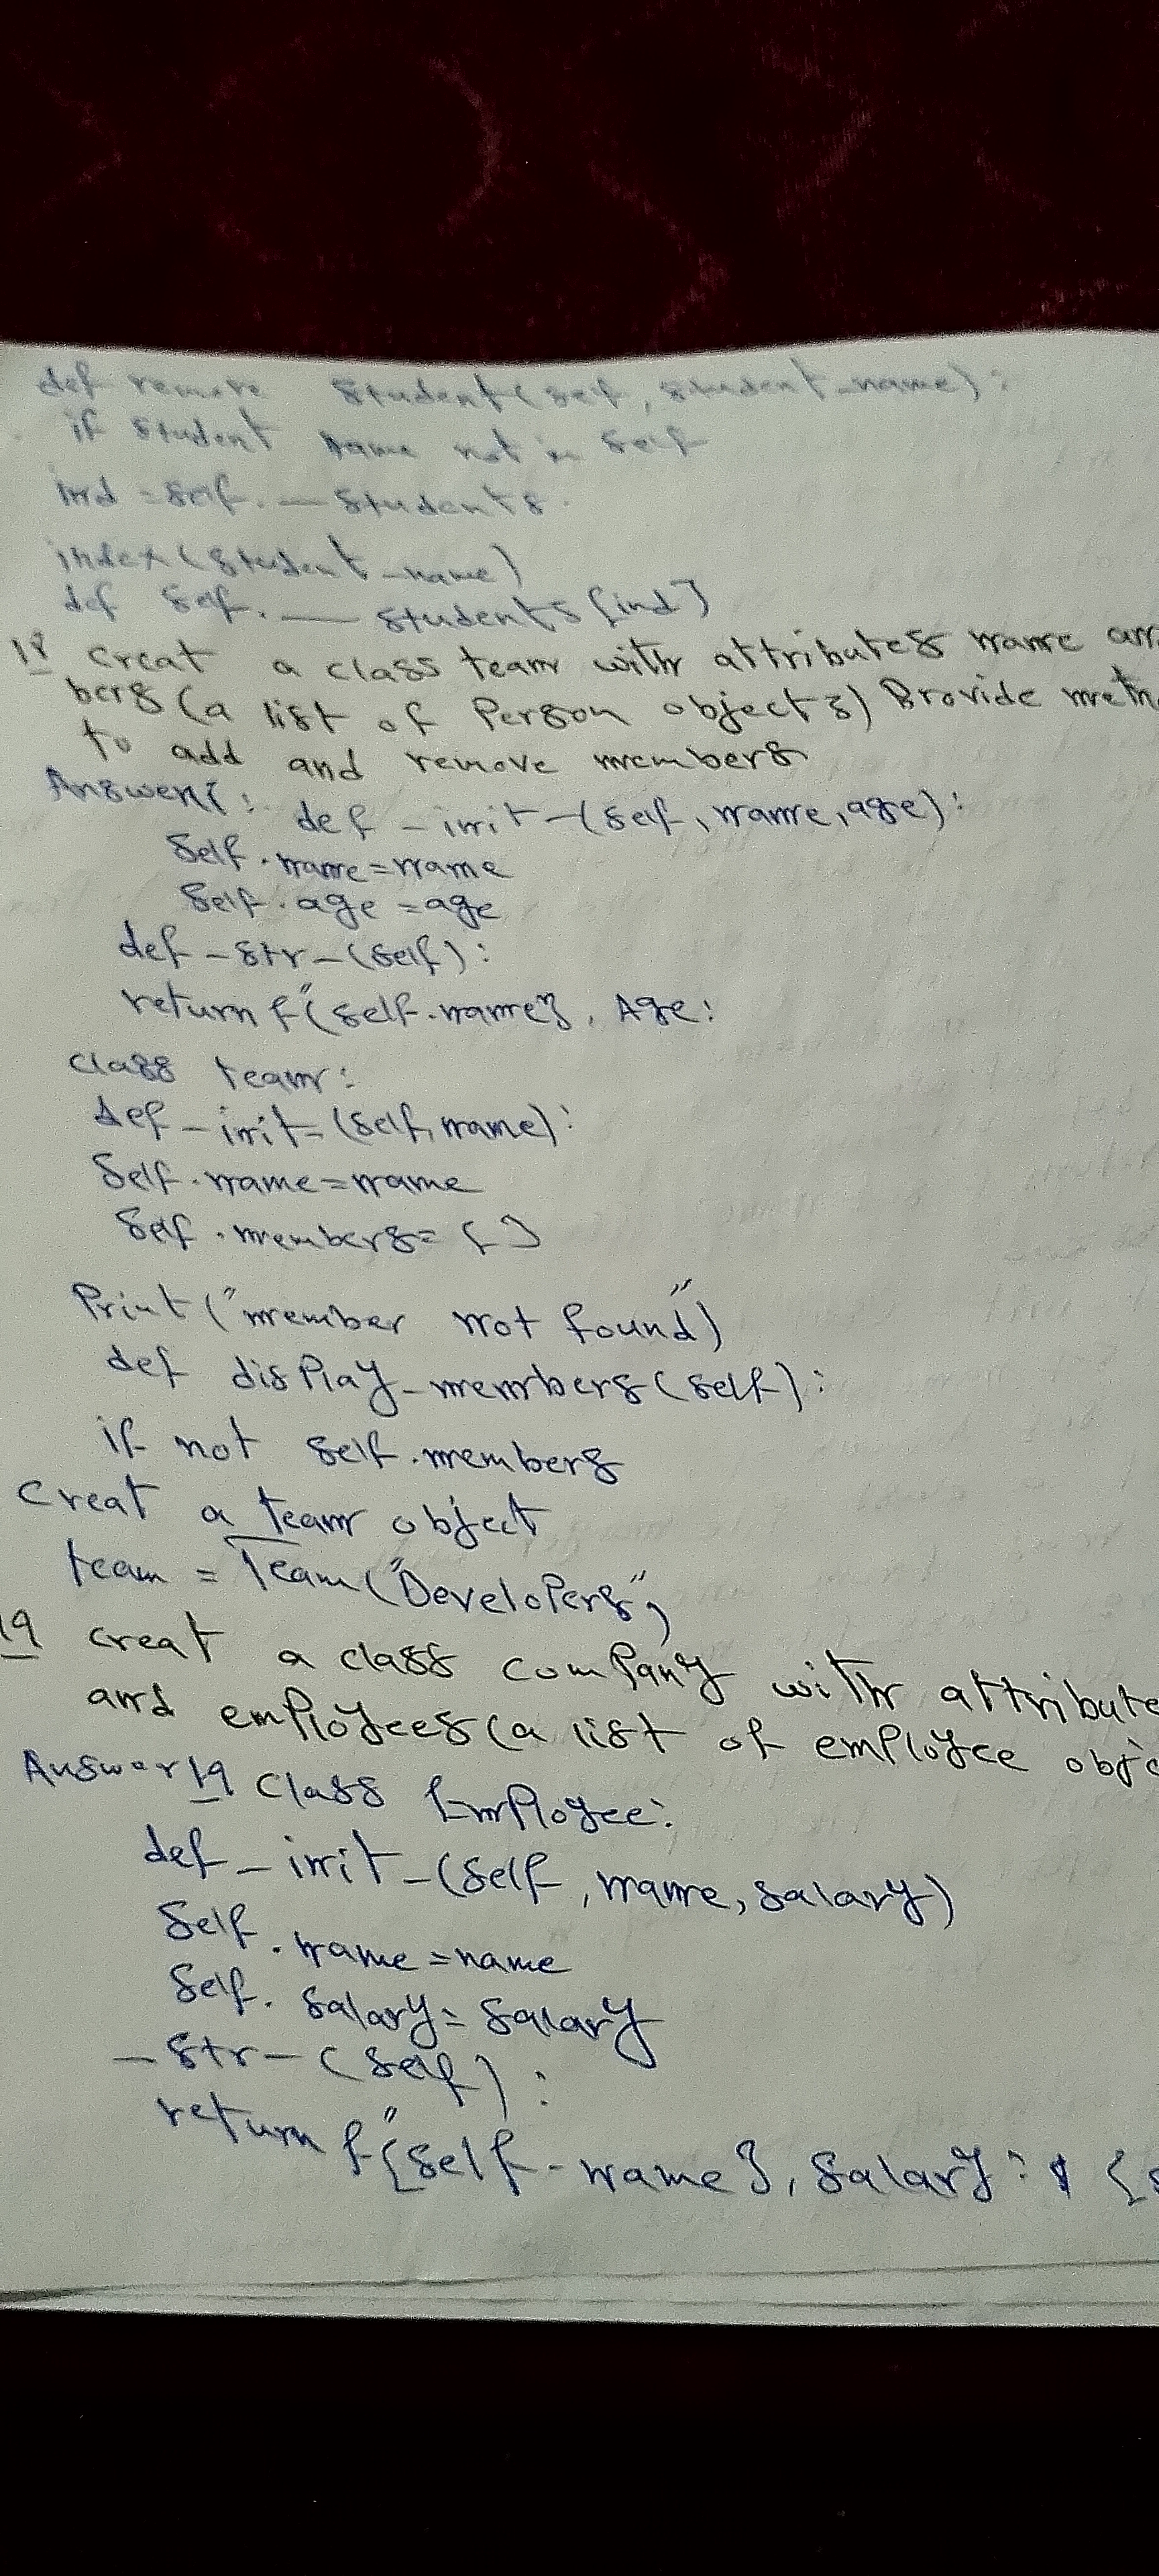 def remove student(self, student_name):
if student name not in self
ind = self.__students.
index(student_name)
def self.__students[ind]
18 creat a class team with attributes name an
bers (a list of Person objects) Provide meth
to add and remove members
Answer: def _init_(self, name, age):
Self.name = name
Self.age = age
def _str_(self):
return f"{self.name}, Age:
class team:
def _init_(self, name):
Self.name = name
Self.members = []
Print("member not found")
def display_members(self):
if not self.members
Creat a team object
team = Team("Developers")
19 creat a class company with attribute
and employees (a list of employee obje
Answer 19 Class Employee:
def _init_(self, name, salary)
Self.name = name
Self.salary = salary
_str_(self):
return f"{self.name}, salary: $ {s